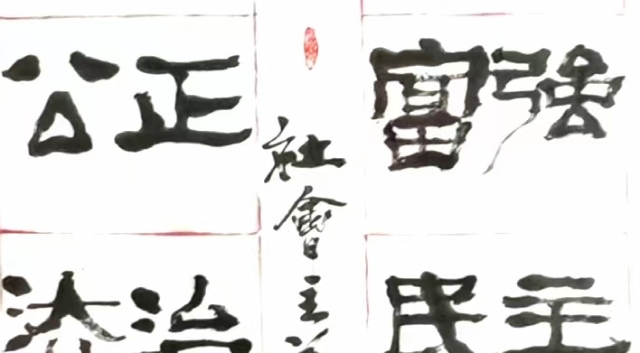 公正
法治
社會主
富強
民主